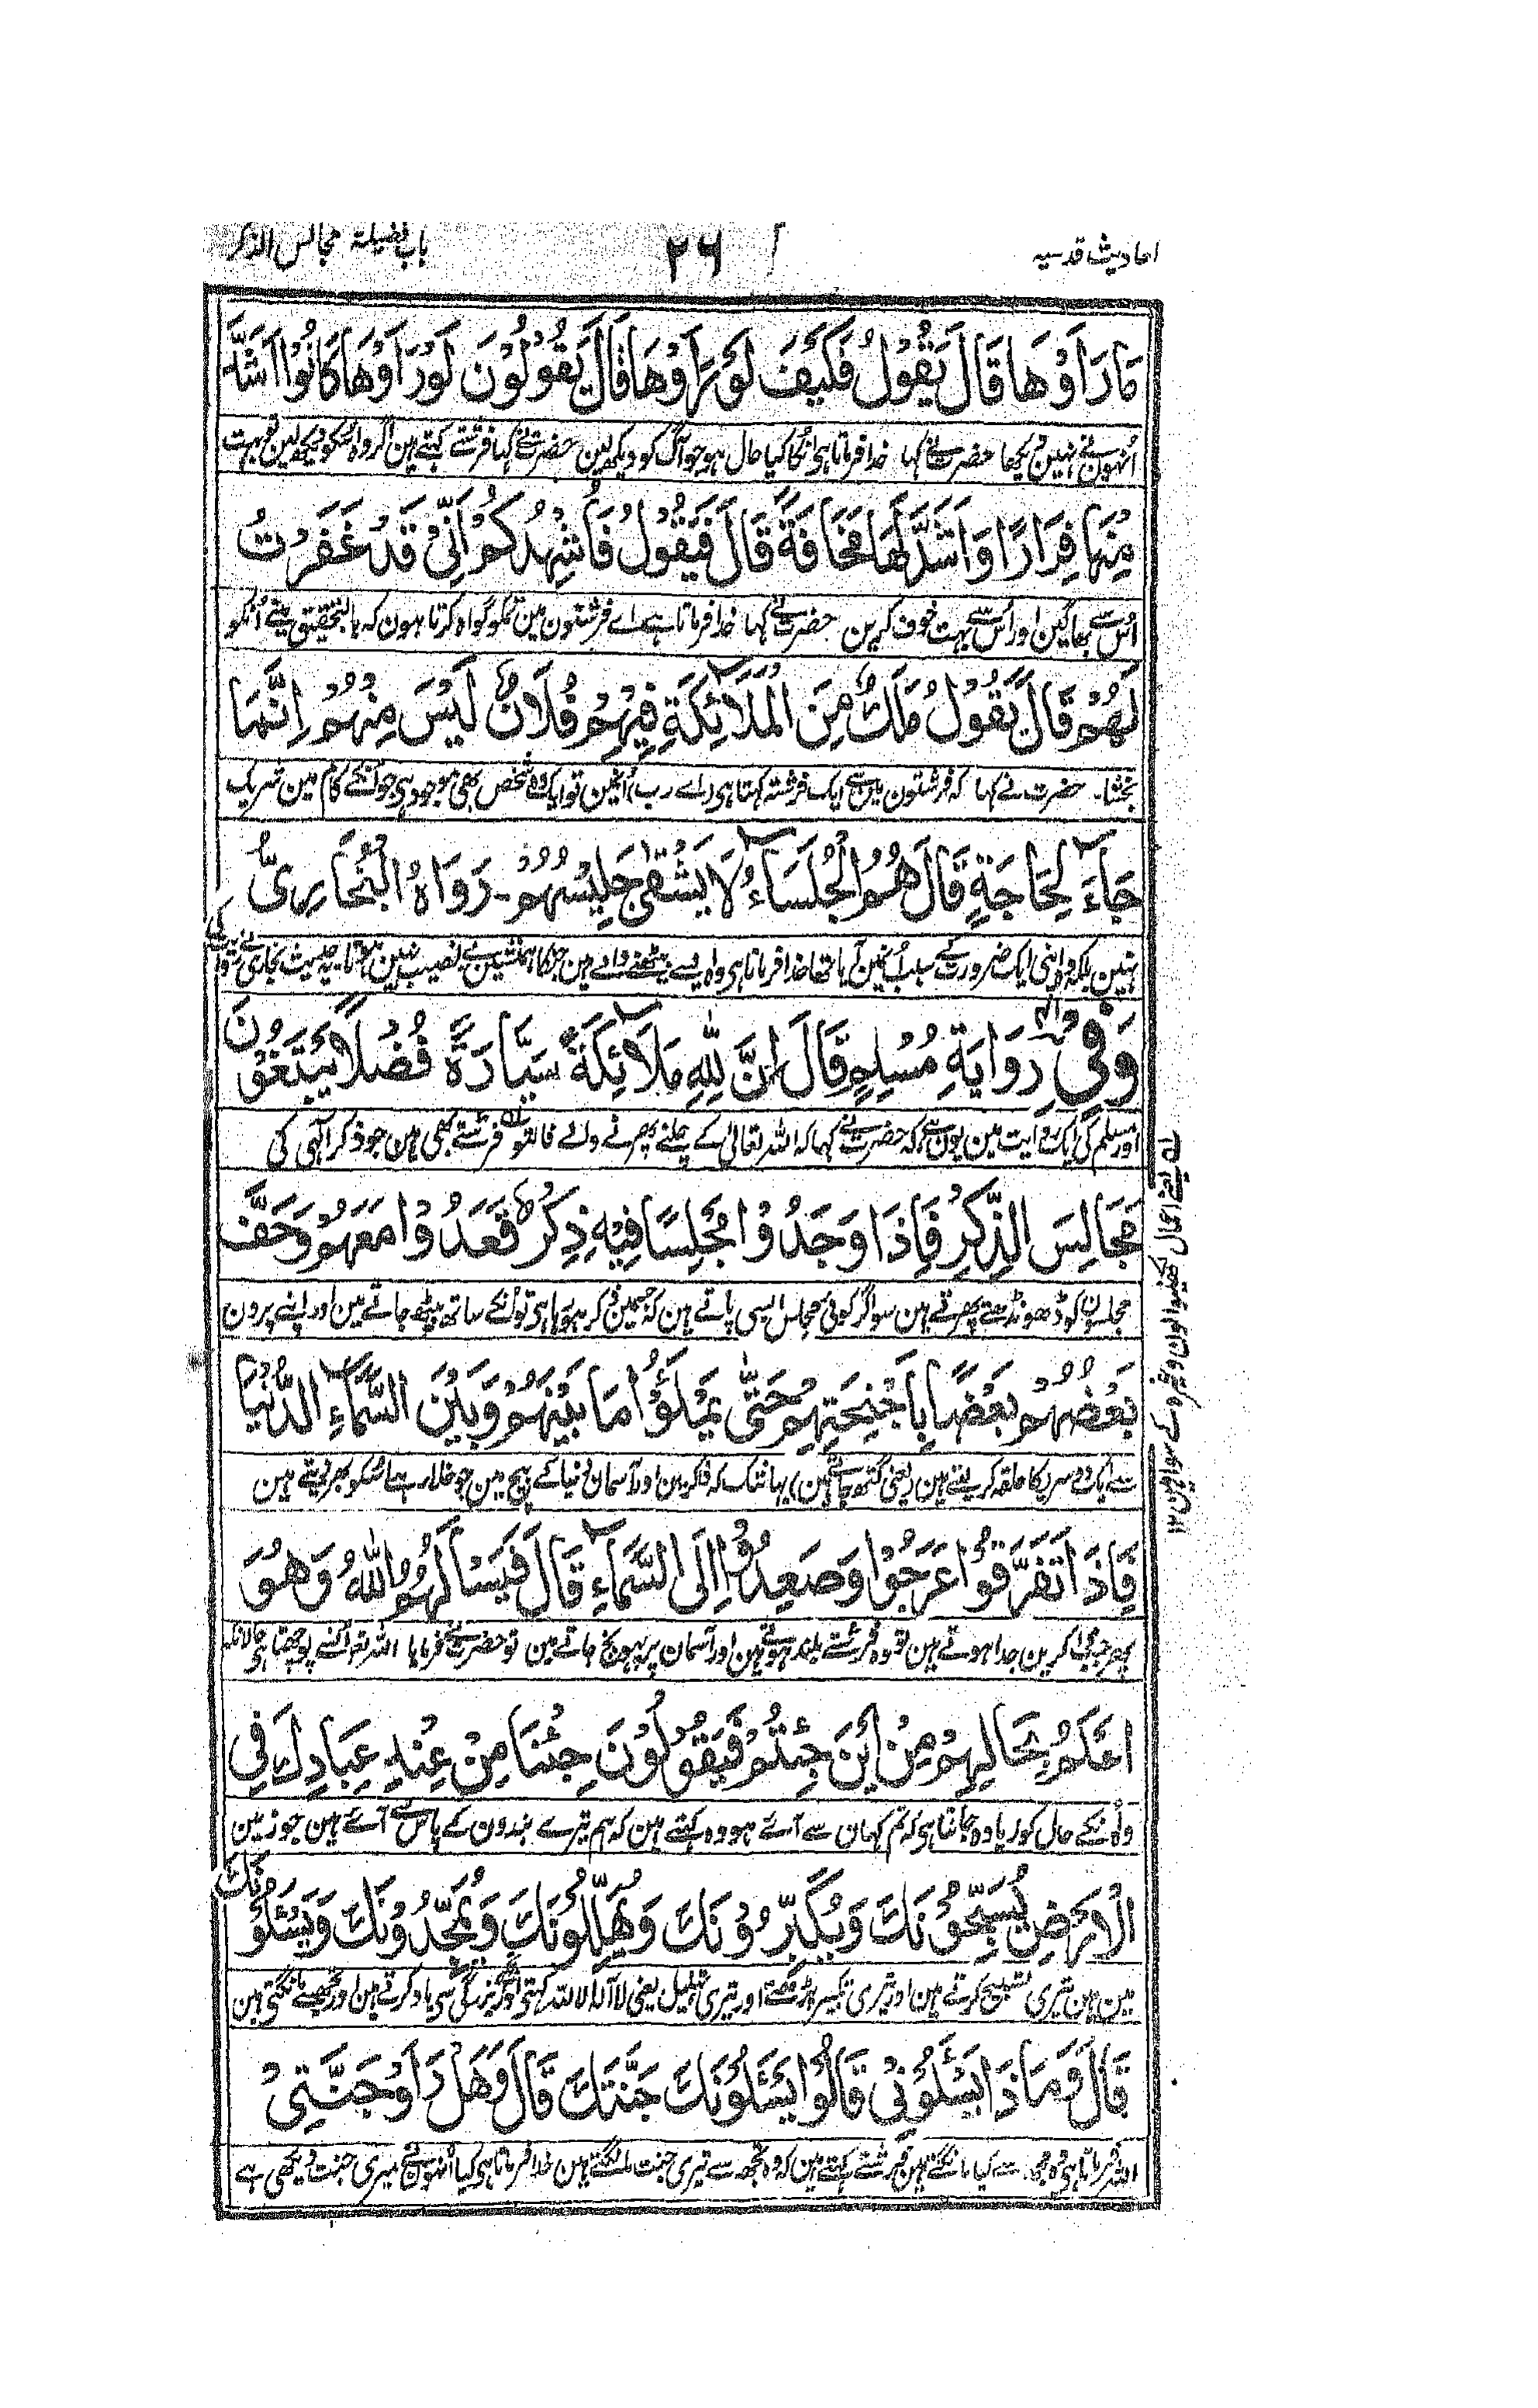 احادیث قدسیہ ۲۶ باب فضیلۃ مجالس الذکر
مَا رَاَوْهَا قَالَ يَقُوْلُ فَكَيْفَ لَوْ رَاَوْهَا قَالَ يَقُوْلُوْنَ لَوْ رَاَوْهَا كَانُوْا اَشَدَّ
اُنہون نے نہین دیکھا حضرت نے کہا خدا فرماتا ہی انکا کیا حال ہو جو آگ کو دیکھ لین حضرت نے کہا فرشتے کہتے ہین اگر وہ اسکو دیکھ لین تو بہت
مِنْهَا فِرَارًا وَاَشَدَّ لَهَا مَخَافَةً قَالَ فَيَقُوْلُ فَاُشْهِدُكُمْ اَنِّيْ قَدْ غَفَرْتُ
اُس سے بھاگین اور اُس سے بہت خوف کرین حضرت نے کہا خدا فرماتا ہے اے فرشتون مین تمکو گواہ کرتا ہون کہ بالتحقیق مینے اُنکو
لَهُمْ قَالَ يَقُوْلُ مَلَكٌ مِنَ الْمَلَائِكَةِ فِيْهِمْ فُلَانٌ لَيْسَ مِنْهُمْ اِنَّمَا
بخشا۔ حضرت نے کہا کہ فرشتون مین سے ایک فرشتہ کہتا ہی اے رب اُنمین تو ایک وہ شخص بھی موجود ہی جو اُنکے کام مین شریک
جَآءَ لِحَاجَةٍ قَالَ هُمُ الْجُلَسَآءُ لَا يَشْقٰى جَلِيْسُهُمْ۔ رَوَاهُ الْبُخَارِيُّ
نہین بلکہ وہ اپنی ایک ضرورت کے سبب اُنمین آیا تھا خدا فرماتا ہی وہ ایسے بیٹھنے والے ہین جنکا ہمنشین بے نصیب نہین ہوتا۔ یہ حدیث بخاری نے روایت کی
وَفِيْ رِوَايَةِ مُسْلِمٍ قَالَ اِنَّ لِلّٰهِ مَلَآئِكَةً سَيَّارَةً فُضُلًا يَبْتَغُوْنَ
اور مسلم کی ایک روایت مین یون ہے کہ حضرت نے کہا کہ اللہ تعالیٰ کے چلنے پھرنے والے فالتو فرشتے بھی ہین جو ذکر الٰہی کی
مَجَالِسَ الذِّكْرِ فَاِذَا وَجَدُوْا مَجْلِسًا فِيْهِ ذِكْرٌ قَعَدُوْا مَعَهُمْ وَحَفَّ
مجلسون کو ڈھونڈھتے پھرتے ہین سو اگر کوئی مجلس ایسی پاتے ہین کہ جسمین ذکر ہو رہا ہی تو اُنکے ساتھ بیٹھ جاتے ہین اور اپنے پرون
بَعْضُهُمْ بَعْضًا بِاَجْنِحَتِهِمْ حَتّٰى يَمْلَؤُا مَا بَيْنَهُمْ وَبَيْنَ السَّمَآءِ الدُّنْيَا
سے ایک دوسرے کا حلقہ کر لیتے ہین (یعنی گتھ جاتے ہین) یہانتک کہ ذاکرین اور آسمان دنیا کے بیچ مین جو خلا رہے اُسکو بھر دیتے ہین
فَاِذَا تَفَرَّقُوْا عَرَجُوْا وَصَعِدُوْا اِلَى السَّمَآءِ قَالَ فَيَسْاَلُهُمُ اللّٰهُ وَهُوَ
پھر جب ذاکرین جدا ہوتے ہین تو وہ فرشتے بلند ہوتے ہین اور آسمان پر پہونچ جاتے ہین تو حضرت نے فرمایا اللہ تعالیٰ اُنسے پوچھتا ہی حالانکہ
اَعْلَمُ بِحَالِهِمْ مِنْ اَيْنَ جِئْتُمْ فَيَقُوْلُوْنَ جِئْنَا مِنْ عِنْدِ عِبَادِكَ فِي
وہ اُنکے حال کو زیادہ جانتا ہی کہ تم کہان سے آئے ہو وہ کہتے ہین کہ ہم تیرے بندون کے پاس سے آئے ہین جو زمین
الْاَرْضِ يُسَبِّحُوْنَكَ وَيُكَبِّرُوْنَكَ وَيُهَلِّلُوْنَكَ وَيُمَجِّدُوْنَكَ وَيَسْئَلُوْنَكَ
مین ہین تیری تسبیح کرتے ہین اور تیری تکبیر پڑھتے اور تیری تہلیل یعنی لا آلہ الا اللہ کہتے اور بزرگی سی یاد کرتے ہین اور تجھسے مانگتے ہین
قَالَ وَمَا ذَا يَسْئَلُوْنِيْ قَالُوْا يَسْئَلُوْنَكَ جَنَّتَكَ قَالَ وَهَلْ رَاَوْ جَنَّتِيْ
اللہ فرماتا ہی وہ مجھ سے کیا مانگتے ہین فرشتے کہتے ہین کہ وہ تجھ سے تیری جنت مانگتے ہین خدا فرماتا ہی کیا اُنہون نے میری جنت دیکھی ہے
لے یعنے اعمال لکھنے والون وغیرہ کے سوا ہین ۱۲